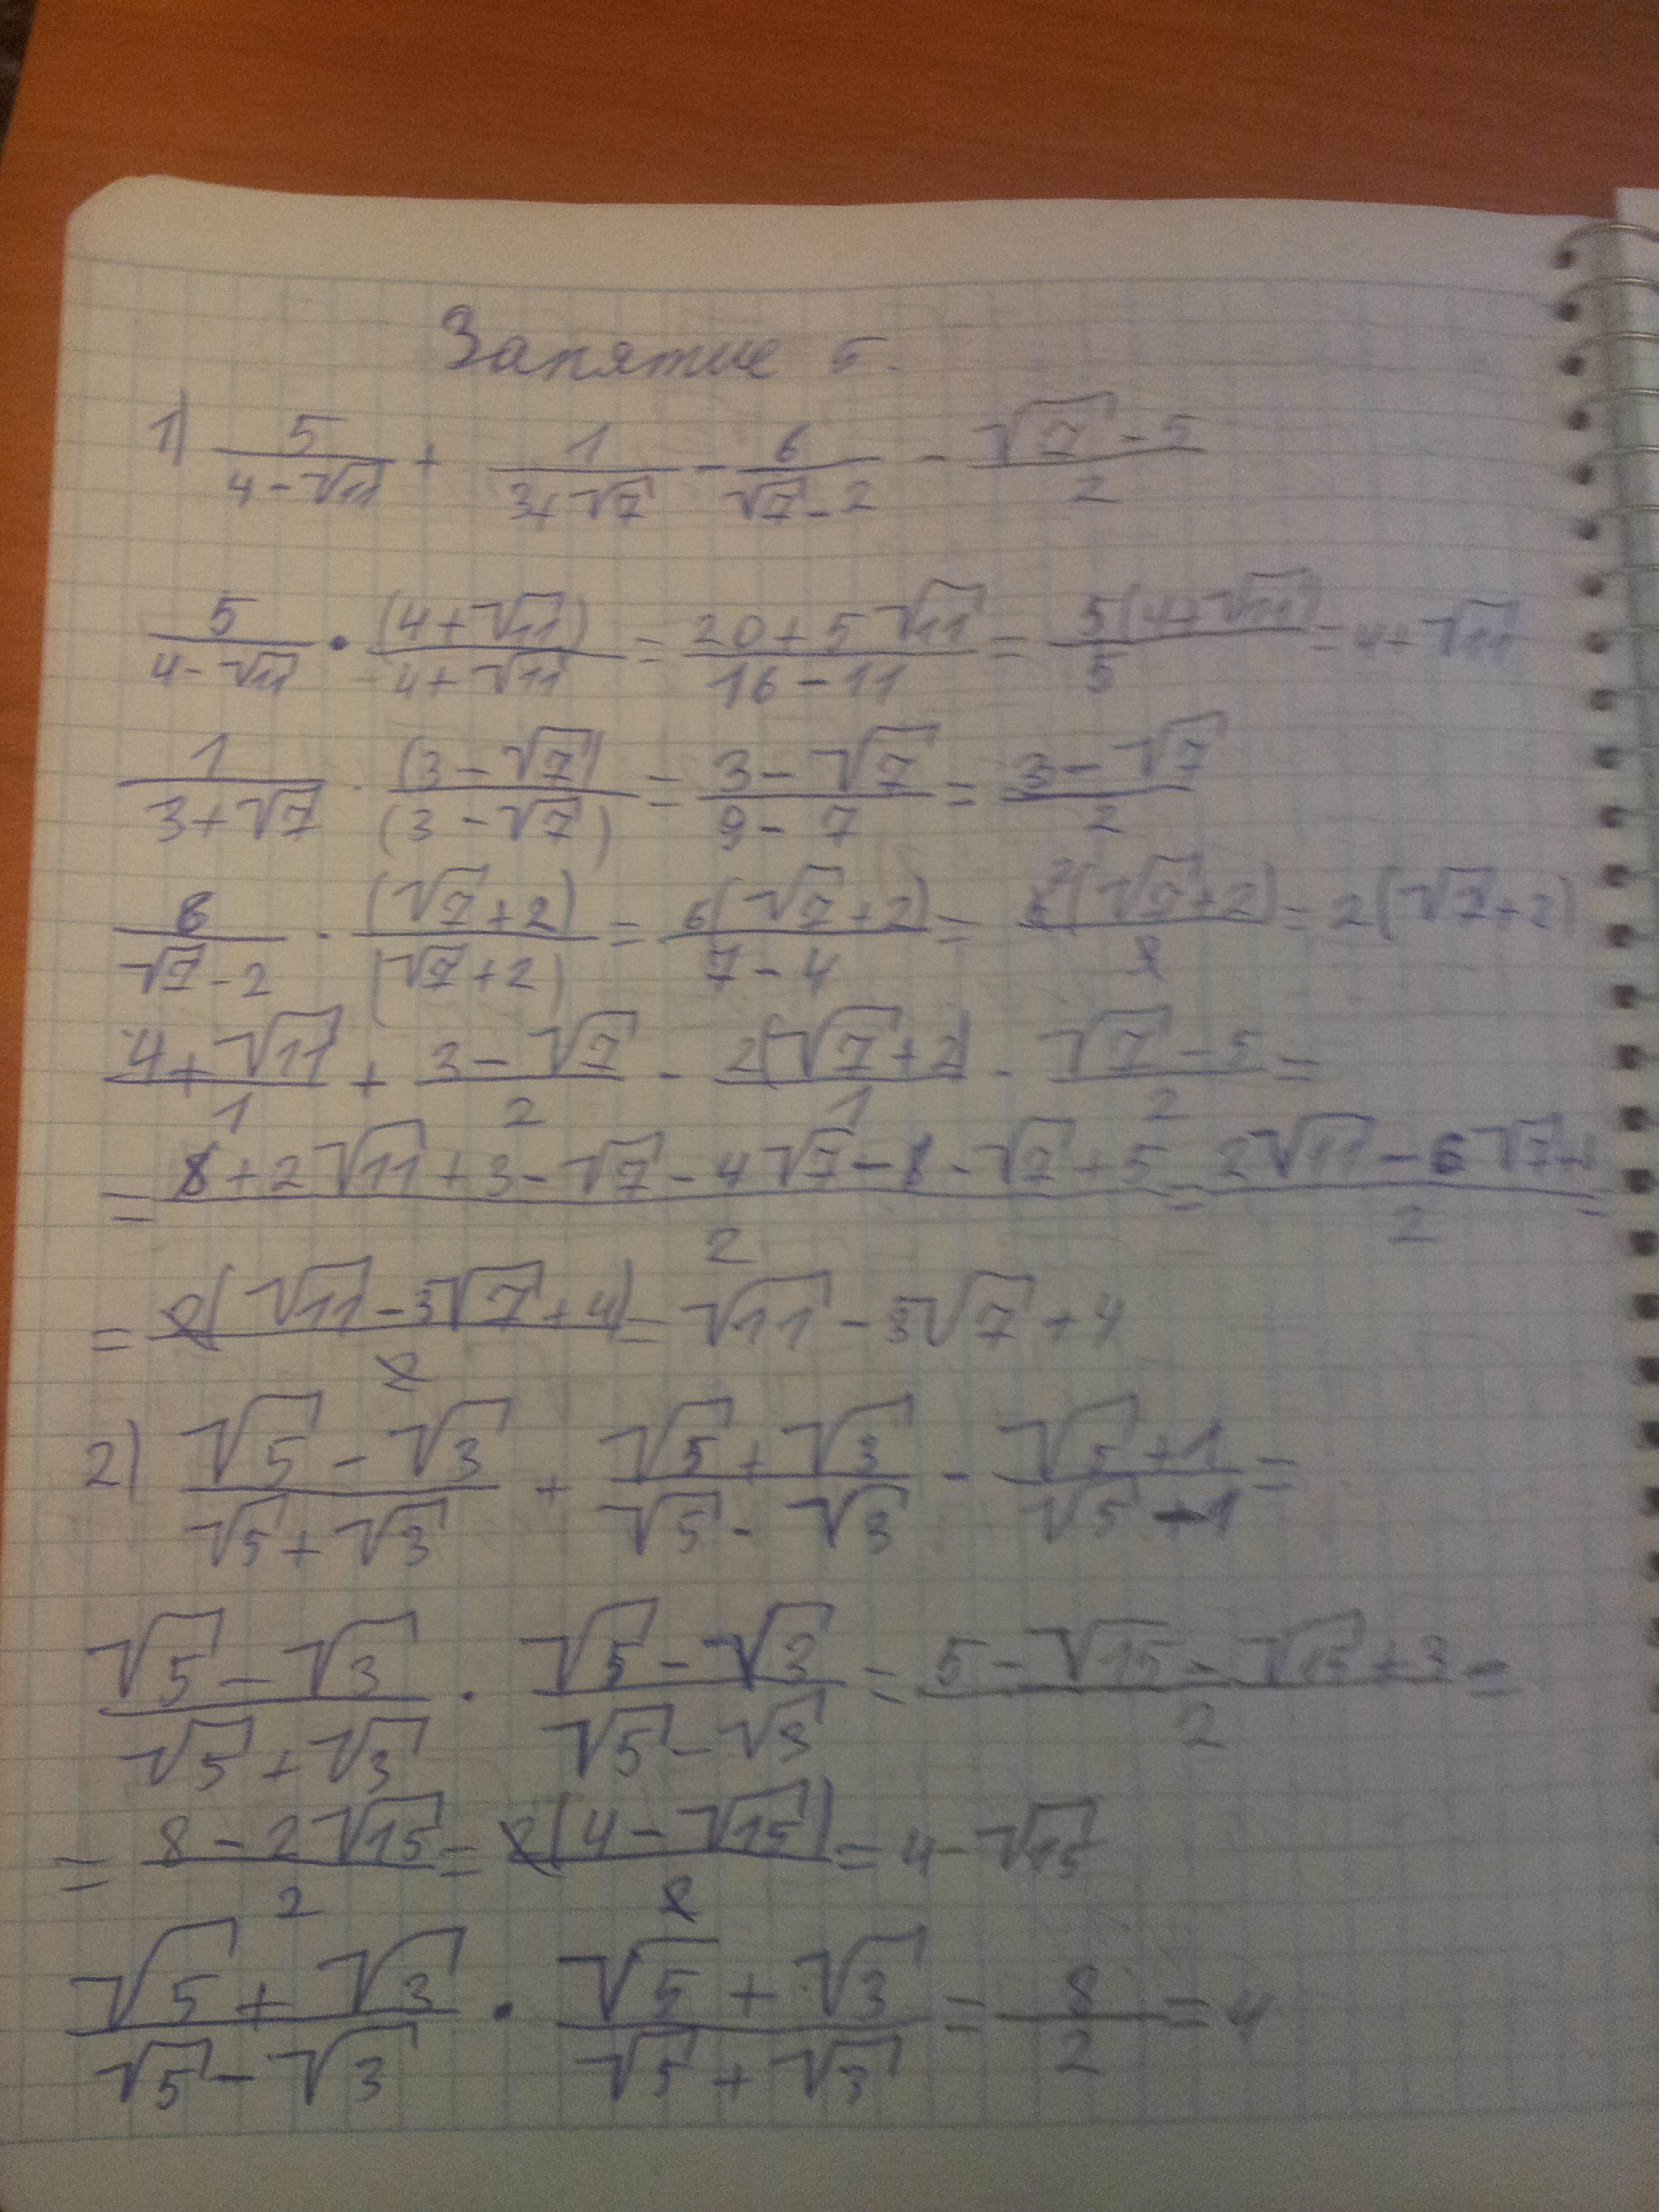 Занятие 5.
1) 5/(4-√11) + 1/(3+√7) - 6/(√7-2) - (√7-5)/2
5/(4-√11) · (4+√11)/(4+√11) = (20+5√11)/(16-11) = 5(4+√11)/5 = 4+√11
1/(3+√7) · (3-√7)/(3-√7) = (3-√7)/(9-7) = (3-√7)/2
6/(√7-2) · (√7+2)/(√7+2) = 6(√7+2)/(7-4) = 6²(√7+2)/3 = 2(√7+2)
(4+√11)/1 + (3-√7)/2 - 2(√7+2)/1 - (√7-5)/2 =
= (8+2√11+3-√7-4√7-8-√7+5)/2 = (2√11-6√7+)/2 =
= 2(√11-3√7+4)/2 = √11-3√7+4
2) (√5-√3)/(√5+√3) + (√5+√3)/(√5-√3) - (√5+1)/(√5-1) =
(√5-√3)/(√5+√3) · (√5-√3)/(√5-√3) = (5-√15-√15+3)/2 =
= (8-2√15)/2 = 2(4-√15)/2 = 4-√15
(√5+√3)/(√5-√3) · (√5+√3)/(√5+√3) = 8/2 = 4